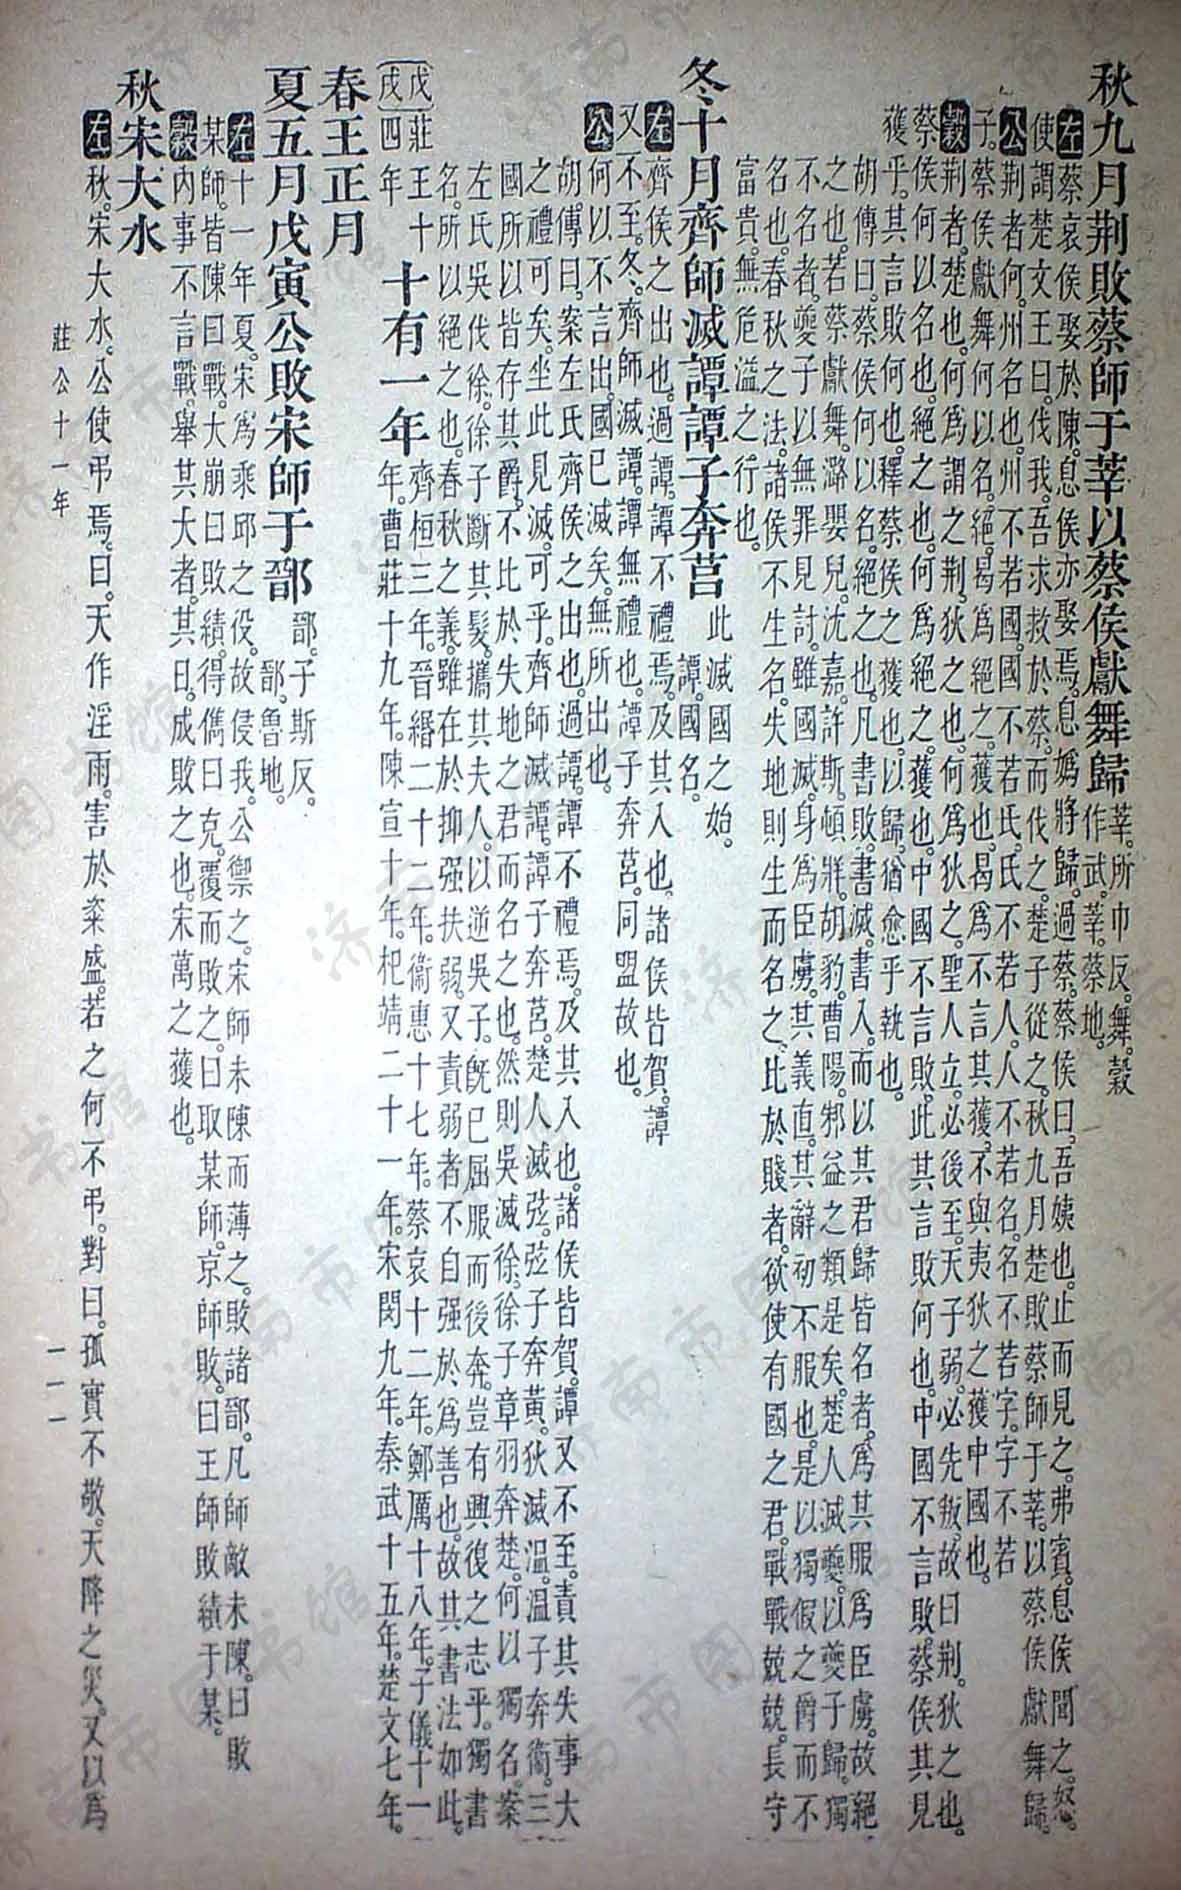 秋九月荆敗蔡師于莘以蔡侯獻舞歸莘所巾反舞穀
作武莘蔡地
左蔡哀侯娶於陳息侯亦娶焉息媯將歸過蔡蔡侯曰吾姨也止而見之弗賓息侯聞之怒
使謂楚文王曰伐我吾求救於蔡而伐之楚子從之秋九月楚敗蔡師于莘以蔡侯獻舞歸
公荆者何州名也州不若國國不若氏氏不若人人不若名名不若字字不若
子蔡侯獻舞何以名絕曷爲絕之獲也曷爲不言其獲不與夷狄之獲中國也
穀荆者楚也何爲謂之荆狄之也何爲狄之聖人立必後至天子弱必先叛故曰荆狄之也
蔡侯何以名也絕之也何爲絕之獲也中國不言敗此其言敗何也中國不言敗蔡侯其見
獲乎其言敗何也釋蔡侯之獲也以歸猶愈乎執也
胡傳曰蔡侯何以名絕之也凡書敗書滅書入而以其君歸皆名者爲其服爲臣虜故絕
之也若蔡獻舞潞嬰兒沈嘉許斯頓牂胡豹曹陽邾益之類是矣楚人滅夔以夔子歸獨
不名者夔子以無罪見討雖國滅身爲臣虜其義直其辭初不服也是以獨假之爵而不
名也春秋之法諸侯不生名失地則生而名之比於賤者欲使有國之君戰戰兢兢長守
富貴無危溢之行也
冬十月齊師滅譚譚子奔莒此滅國之始
譚國名
左齊侯之出也過譚譚不禮焉及其入也諸侯皆賀譚
又不至冬齊師滅譚譚無禮也譚子奔莒同盟故也
公何以不言出國已滅矣無所出也
胡傳曰案左氏齊侯之出也過譚譚不禮焉及其入也諸侯皆賀譚又不至責其失事大
之禮可矣坐此見滅可乎齊師滅譚譚子奔莒楚人滅弦弦子奔黃狄滅溫溫子奔衞三
國所以皆存其爵不比於失地之君而名之也然則吳滅徐徐子章羽奔楚何以獨名案
左氏吳伐徐徐子斷其髮攜其夫人以逆吳子旣已屈服而後奔豈有興復之志乎獨書
名所以絕之也春秋之義雖在於抑强扶弱又責弱者不自强於爲善也故其書法如此
戊戌莊王十四年十有一年齊桓三年晉緡二十二年衞惠十七年蔡哀十二年鄭厲十八年子儀十一
年曹莊十九年陳宣十年杞靖二十一年宋閔九年秦武十五年楚文七年
春王正月
夏五月戊寅公敗宋師于鄑鄑子斯反
鄑魯地
左十一年夏宋爲乘邱之役故侵我公禦之宋師未陳而薄之敗諸鄑凡師敵未陳曰敗
某師皆陳曰戰大崩曰敗績得儁曰克覆而敗之曰取某師京師敗曰王師敗績于某
穀內事不言戰舉其大者其日成敗之也宋萬之獲也
秋宋大水
左秋宋大水公使弔焉曰天作淫雨害於粢盛若之何不弔對曰孤實不敬天降之災又以爲
莊公十一年
一一一